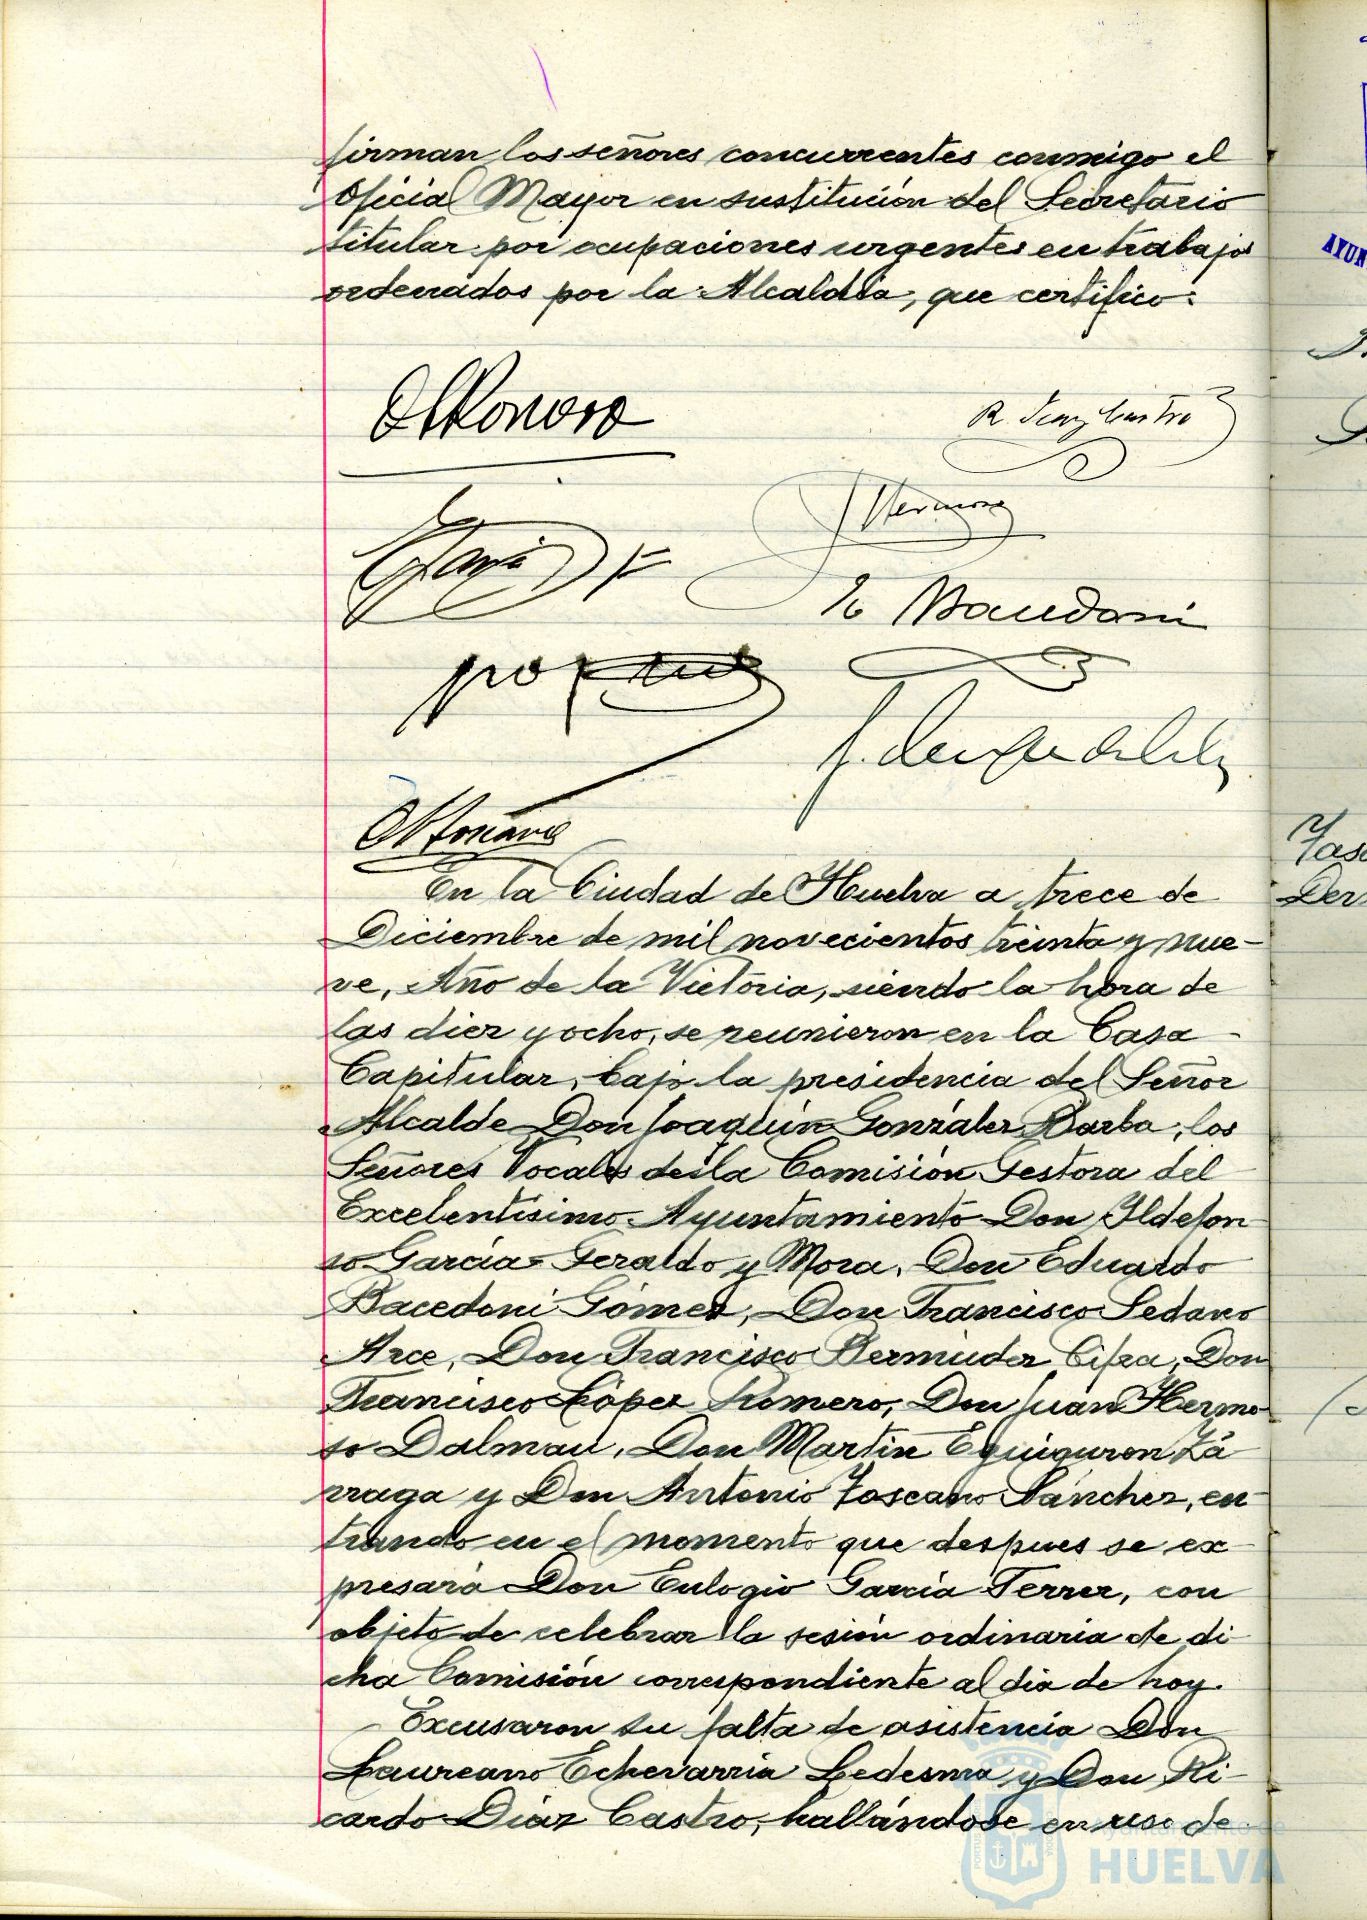 firman los señores concurrentes conmigo el
Oficial Mayor en sustitución del Secretario
titular por ocupaciones urgentes en trabajos
ordenados por la Alcaldía, que certifico:
R. Díaz Castro
J Hermoso
AYUN
En la Ciudad de Huelva a trece de
Diciembre de mil novecientos treinta y nue-
ve, Año de la Victoria, siendo la hora de
las diez y ocho, se reunieron en la Casa
Capitular, bajo la presidencia del Señor
Alcalde Don Joaquín González Barba, los
Señores Vocales de la Comisión Gestora del
Excelentísimo Ayuntamiento Don Ildefon
so García Geraldo y Mora, Don Eduardo
Bacedoni Gómez, Don Francisco Sedano
Arce, Don Francisco Bermúdez Cifra, Don
Francisco López Romero, Don Juan Hermo
so Dalmau, Don Martín Eguiguron Zá
rraga y Don Antonio Toscano Sánchez, en
trando en el momento que despues se ex
presará Don Eulogio García Ferrer, con
objeto de celebrar la sesión ordinaria de di
cha Comisión correspondiente al día de hoy.
Excusaron su falta de asistencia Don
Laureano Echevarría Ledesma y Don Ri-
cardo Díaz Castro, hallándose en uso de
Ayuntamiento de
HUELVA